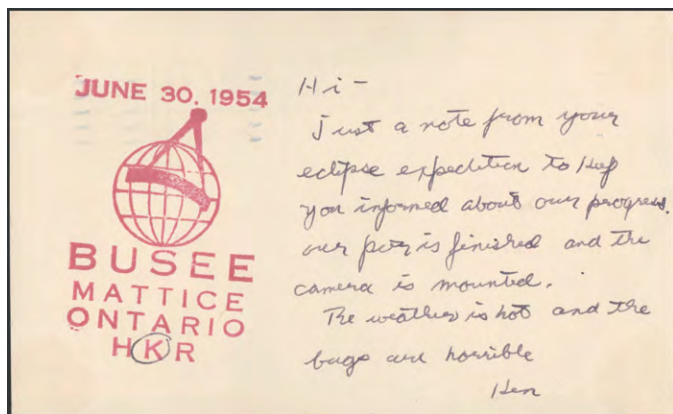 JUNE 30, 1954
BUSEE
MATTICE
ONTARIO
HKR
Hi -
Just a note from your
eclipse expedition to Keep
you informed about our progress.
our pier is finished and the
camera is mounted.
The weather is hot and the
bugs are horrible
Ken